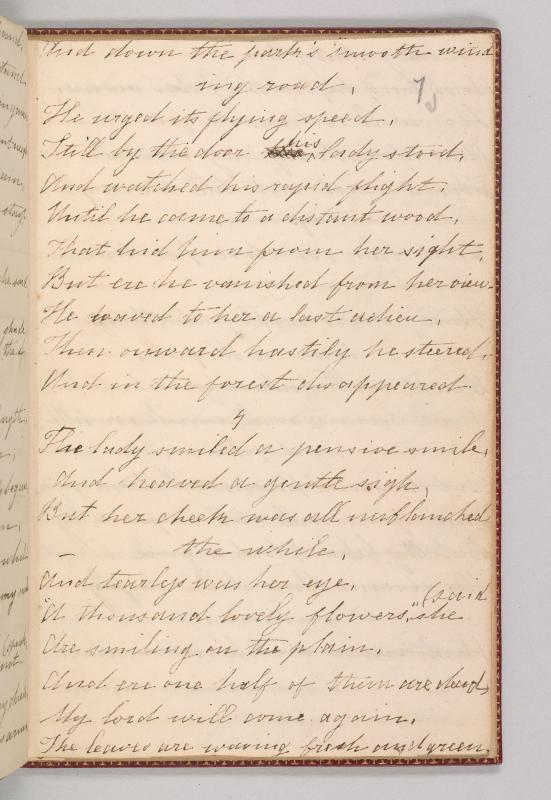 And down the park's smooth wind
ing road,
He urged its flying speed.
Still by the door his lady stood,
And watched his rapid flight,
Until he came to a distant wood,
That hid him from her sight.
But ere he vanished from her view
He waved to her a last adieu,
Then onward hastily he steered,
And in the forest disappeared.
4
The lady smiled a pensive smile,
And heaved a gentle sigh,
But her cheek was all unblanched
the while,
And tearless was her eye.
(said
"A thousand lovely flowers," she
Are smiling on the plain,
And ere one half of them are dead,
My lord will come again,
The leaves are waving fresh and green,